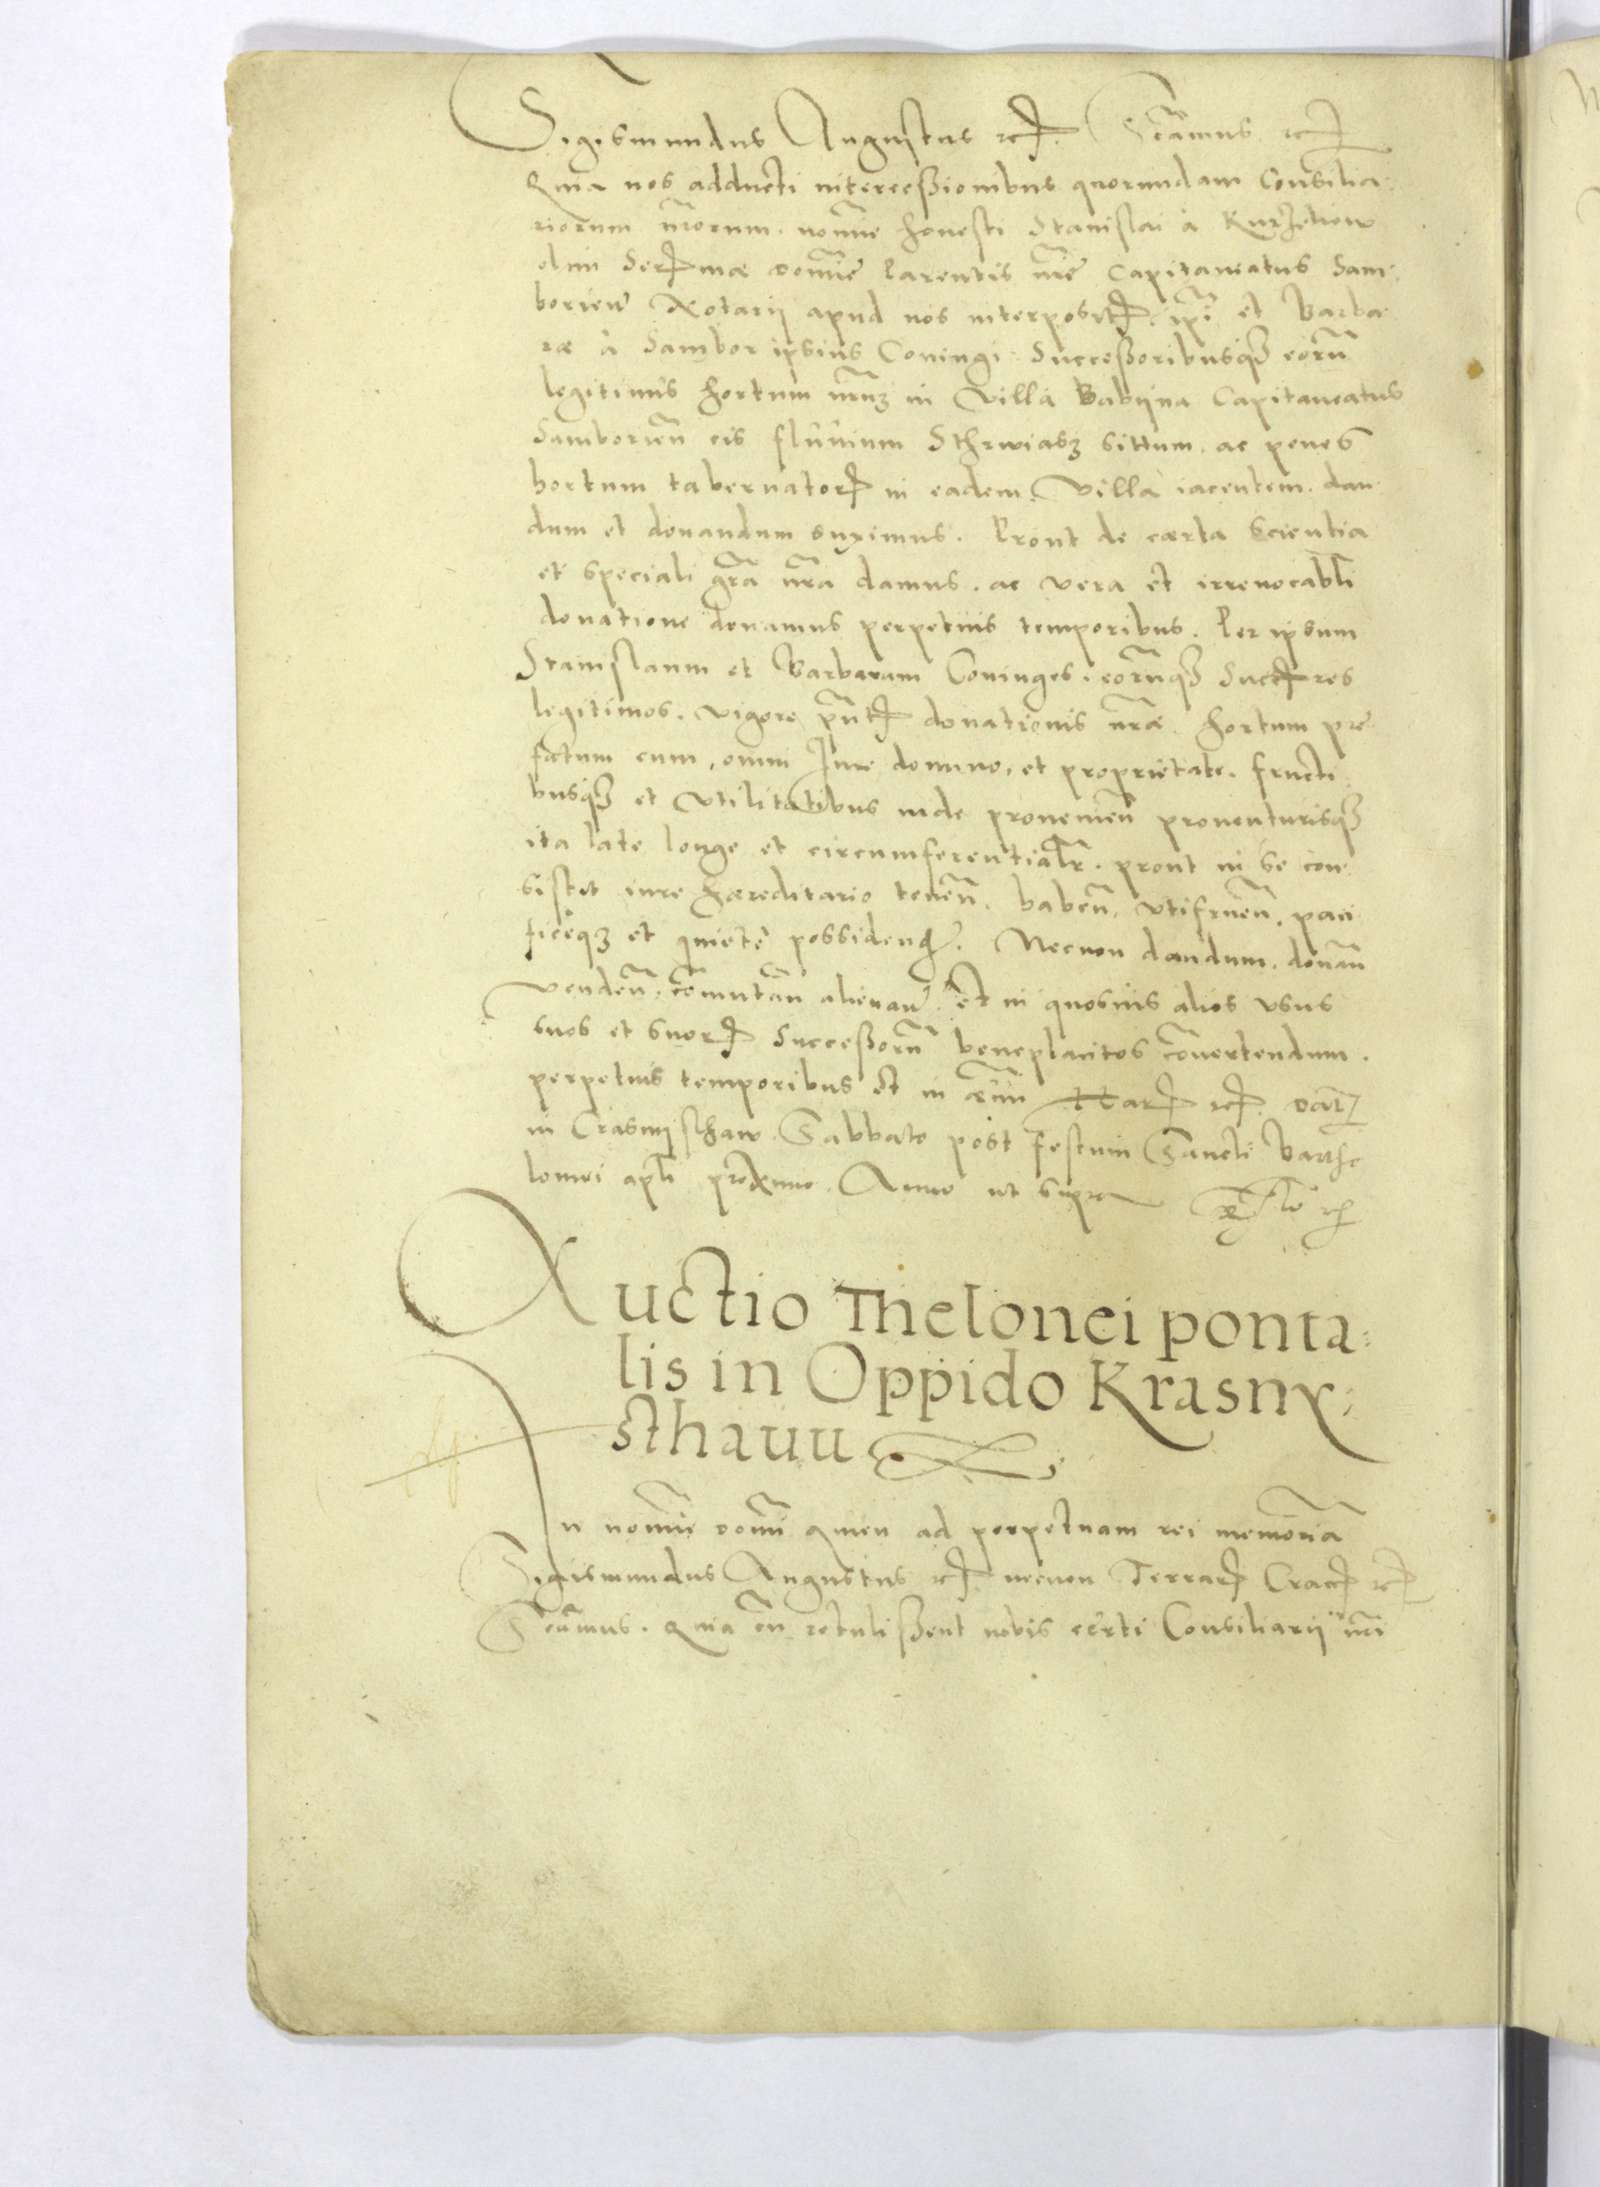 Sigismundus Augustus etc. Scāmus etc.
Quia nos adducti intercessionibus quorundam Consilia-
riorum nr̄orum. noīe honesti Stanislai à Kurzeliow
olim Ser. mae domīe Parentis nr̄e Capitaneatus Sam-
borien Notarii apud nos interposit. ipī et Barba-
rae à Sambor ipsius Coniugi. Successoribusq̃ eorū
legitimis hortum nr̄m in Villa Babyna Capitaneatus
Samborien̄ cis fluuium Sthrwiasz sittum. ac penes
hortum tabernator̃ in eadem Villa iacentem. dan-
dum et donandum duximus. Prout de caerta scientia
et speciali gr̄a nr̄a damus. ac vera et irreuocabli
donatione donamus perpetuis temporibus. Per ipsum
Stanislaum et Barbaram Coniuges. eorūq̃ Succ̃res
legitimos. vigore pn̄t̃ donationis nr̄ae hortum prae-
fatum cum omni Iure dominio, et proprietate. fructi-
busq̃ et vtilitatibus inde prouenien̄ prouenturisq̃
ita late longe et circumferentialr̄. prout in se con-
sistit iure haereditario tenen̄. haben̄. vtifruen̄. paci-
ficeq̃ et quietè possidend̃. Necnon dandum. donan̄
venden̄. com̄utan̄ alienan̄. et in quosuis alios vsus
suos et suor̃ Successorū beneplacitos cōuertendum.
perpetuis temporibus et in aeuū Har̃ etc. Dat̃
in Crasnysthaw Sabbato post festum Sancti Bartho-
lomei apl̄i proximo. Anno ut supra
Auctio Thelonei ponta-
lis in Oppido Krasny-
sthauu
In noīe domī amen ad perpetuam rei memoriā
Sigismundus Augustus etc. necnon Terrar̃ Crac̃ etc.
Scāmus. Quia cū retulissent nobis certi Consiliarii nr̄i